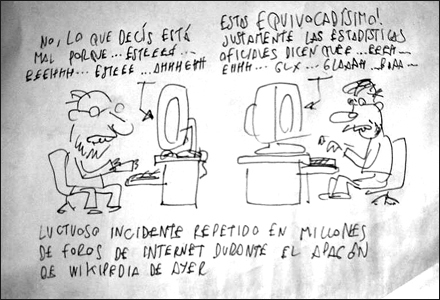 NO, LO QUE DECÍS ESTÁ
MAL PORQUE... ESTEEEE...
EEEHHH... ESTEEE... AHHHEHH
ESTÁS EQUIVOCADÍSIMO!
JUSTAMENTE LAS ESTADÍSTICAS
OFICIALES DICEN QUEE... EEEH...
EHHH... GLX... GLAAAH...
LUCTUOSO INCIDENTE REPETIDO EN MILLONES
DE FOROS DE INTERNET DURANTE EL APAGÓN
DE WIKIPEDIA DE AYER